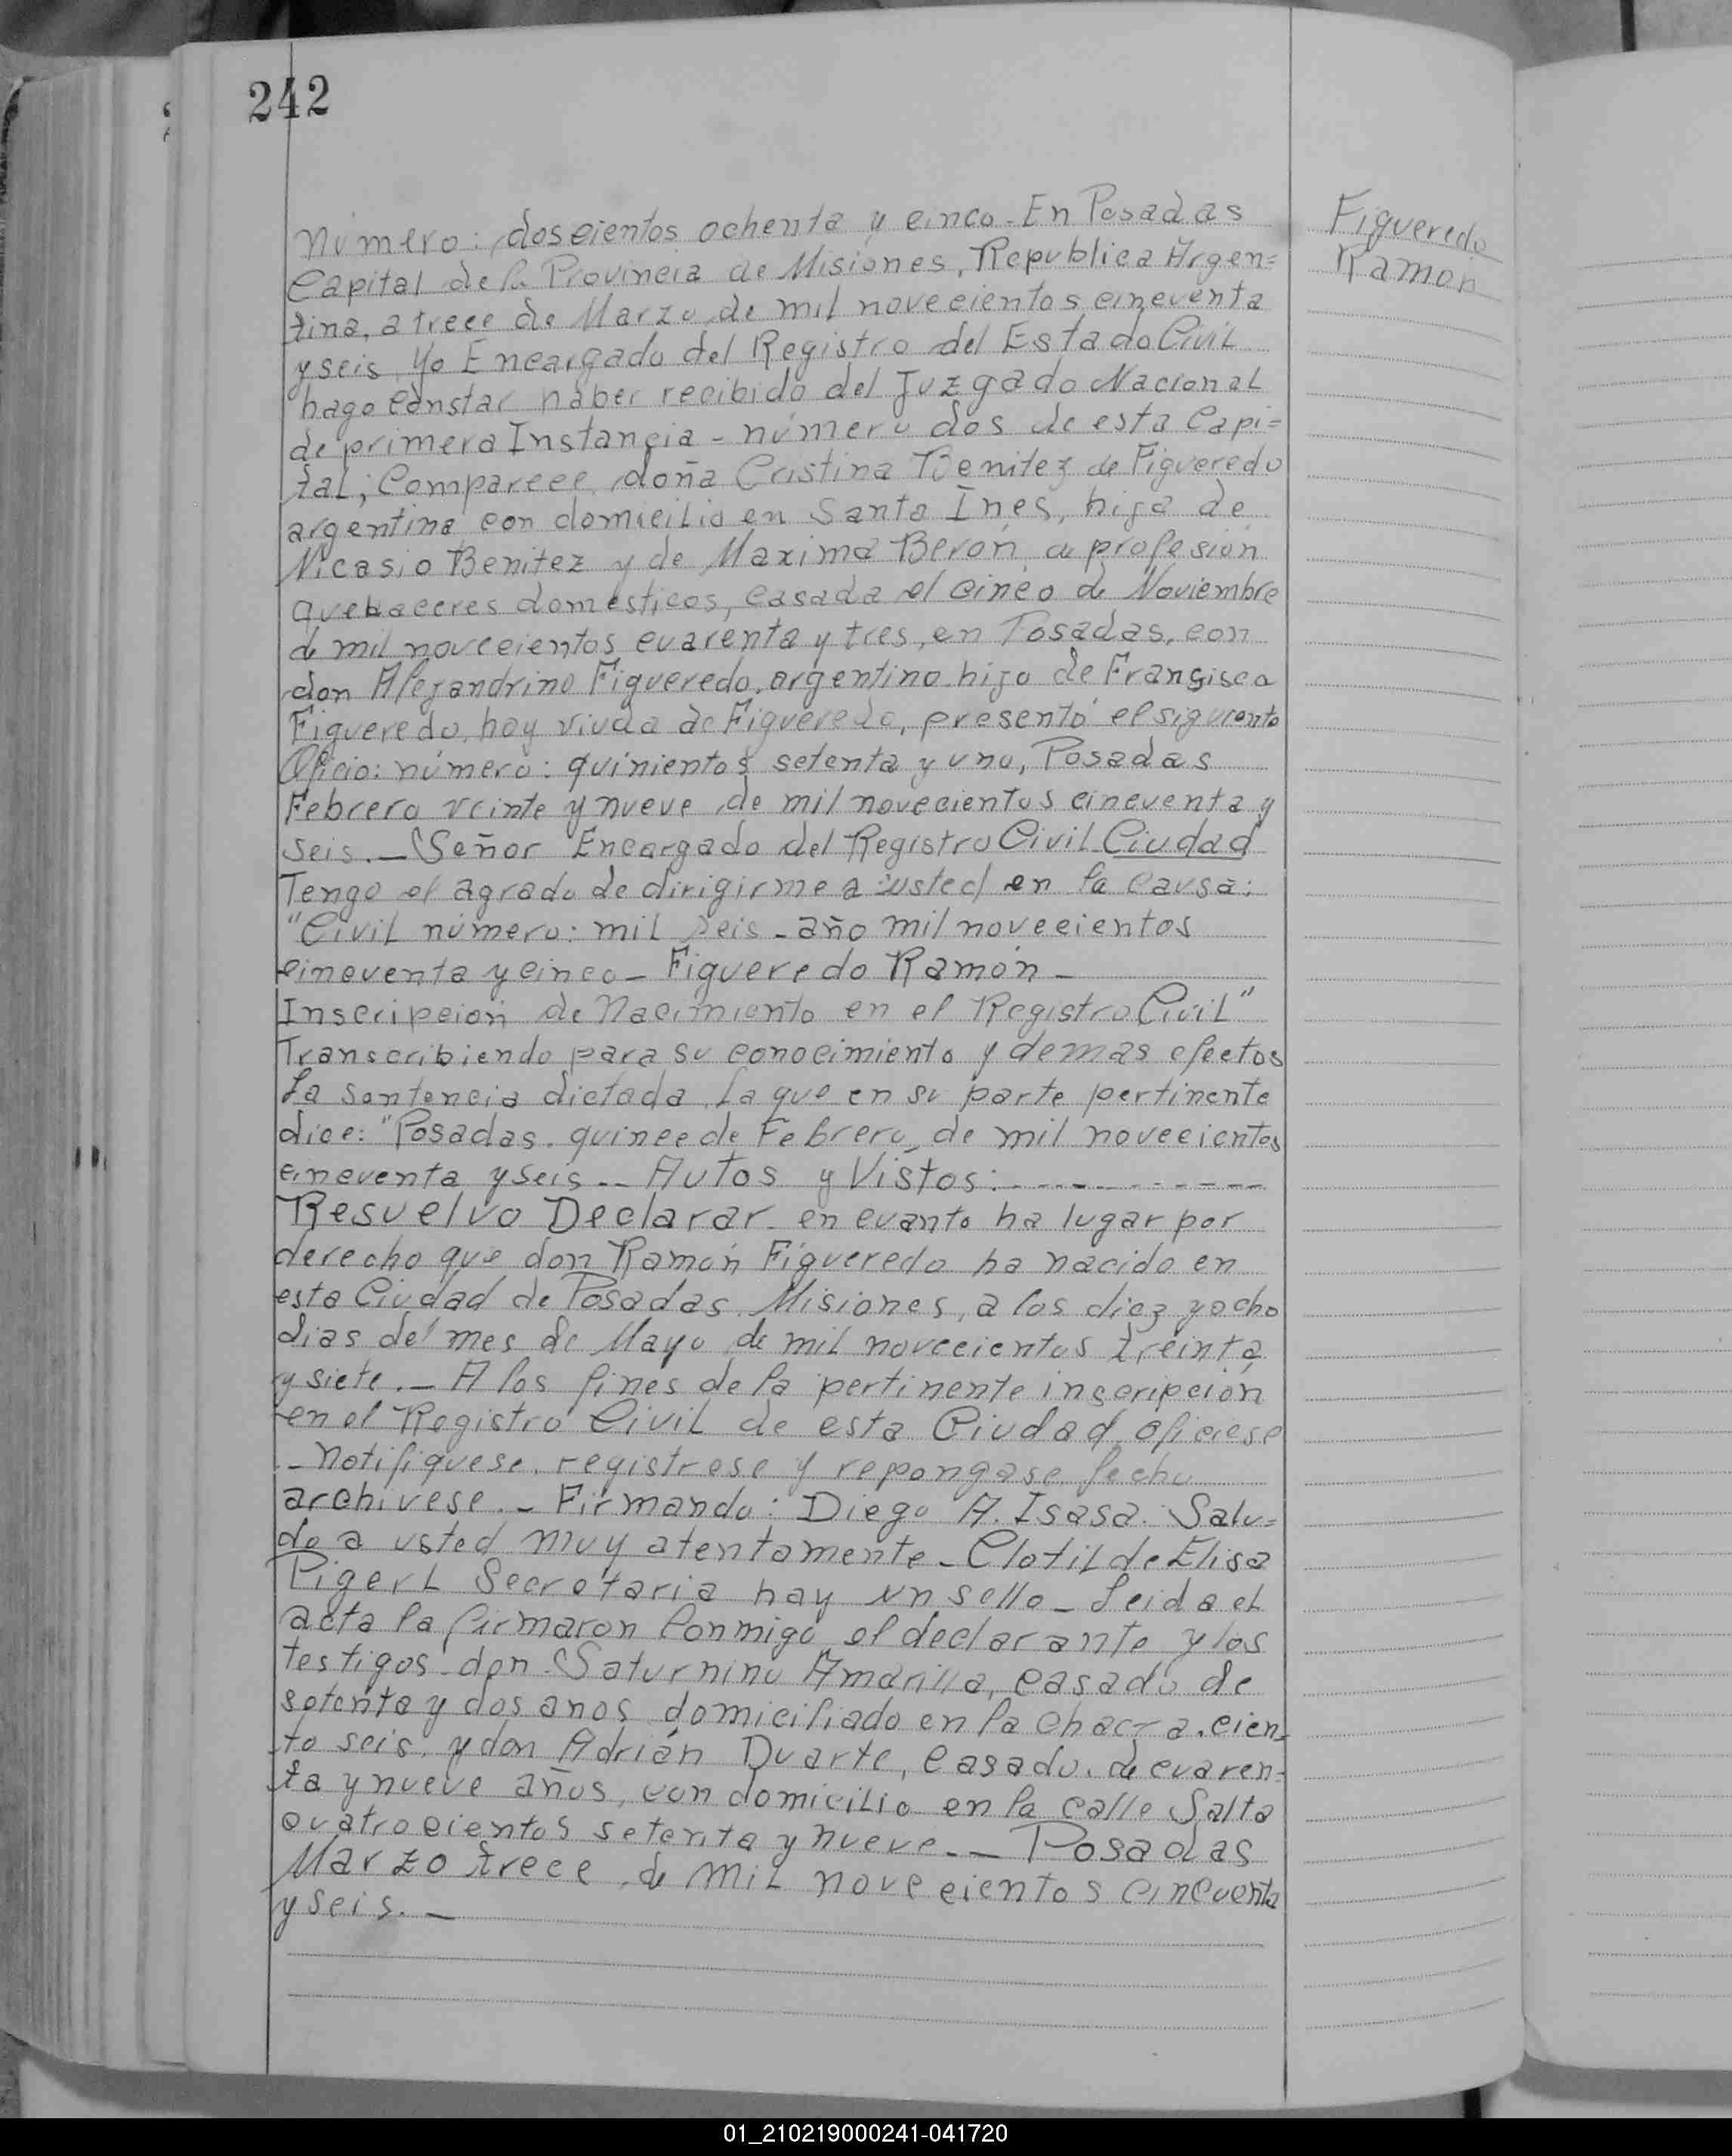 242
Figueredo
Ramón
Número: doscientos ochenta y cinco - En Posadas
Capital de la Provincia de Misiones, Republica Argen=
tina, a trece de Marzo de mil novecientos cincuenta
y seis Yo Encargado del Registro del Estado Civil
hago constar haber recibido del Juzgado Nacional
de primera Instancia - número dos de esta Capi=
tal; Comparece doña Cristina Benitez de Figueredo
argentina con domicilio en Santa Inés, hija de
Nicasio Benitez y de Maxima Beron, de profesion
quehaceres domésticos, casada el cinco de Noviembre
de mil novecientos cuarenta y tres, en Posadas, con
don Alejandrino Figueredo, argentino hijo de Francisca
Figueredo, hoy viuda de Figueredo, presentó el siguiente
Oficio: número: quinientos setenta y uno, Posadas
Febrero veinte y nueve de mil novecientos cincuenta y
seis. - Señor Encargado del Registro Civil Ciudad
Tengo el agrado de dirigirme a usted en la causa:
"Civil número: mil seis - año mil novecientos
cincuenta y cinco - Figueredo Ramón -
Inscripción de Nacimiento en el Registro Civil"
Transcribiendo para su conocimiento y demas efectos
La sentencia dictada, la que en su parte pertinente
dice: "Posadas. quince de Febrero de mil novecientos
cincuenta y seis -- Autos y Vistos: - - - - - - - - - -
Resuelvo Declarar en cuanto ha lugar por
derecho que don Ramón Figueredo ha nacido en
esta Ciudad de Posadas. Misiones, a los diez y ocho
dias del mes de Mayo de mil novecientos treinta
y siete. - A los fines de la pertinente inscripción
en el Registro Civil de esta Ciudad oficiese
- notifiquese. registrese y repongase fecho
archivese. - Firmando: Diego A. Isasa. Salu=
do a usted muy atentamente - Clotilde Elisa
Pigerl Secretaria hay un sello - Leida el
acta la firmaron Conmigo el declarante y los
testigos don Saturnino Amarilla, casado de
setenta y dos anos domiciliado en la chacra. cien=
to seis, y don Adrián Duarte, casado. de cuaren=
ta y nueve años, con domicilio en la calle Salta
cuatrocientos setenta y nueve. - Posadas
Marzo trece de mil novecientos cincuenta
y seis. -
01_210219000241-041720